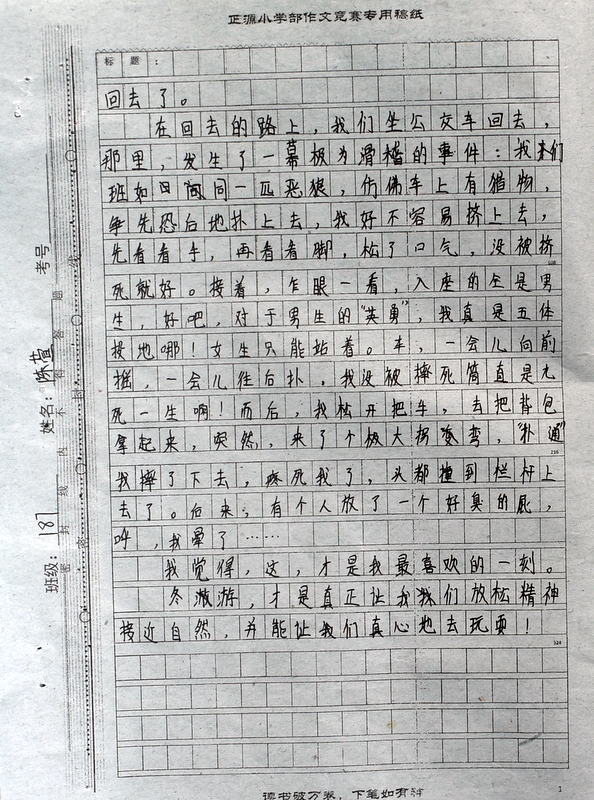 正源小学部作文竞赛专用稿纸
标题:
回去了。
在回去的路上，我们坐公交车回去，
那里，发生了一幕极为滑稽的事件：我们
班如同一匹恶狼，仿佛车上有猎物，
争先恐后地扑上去，我好不容易挤上去，
先看看手，再看看脚，松了口气，没被挤
死就好。接着，乍眼一看，入座的全是男
生，好吧，对于男生的“英勇”，我真是五体
投地哪！女生只能站着。车，一会儿向前
摇，一会儿往后扑，我没被摔死简直是九
死一生啊！而后，我松开把车，去把背包
拿起来，突然，来了个极大拐弯，“扑通”
216
我摔了下去，疼死我了，头都撞到栏杆上
去了。后来，有个人放了一个好臭的屁，
呼，我晕了……
我觉得，这，才是我最喜欢的一刻。
冬游，才是真正让我们放松精神
接近自然，并能让我们真心地去玩耍！
324
读书破万卷，下笔如有神
1
班级：187 姓名：陈萱 考号
密封线内不得答题